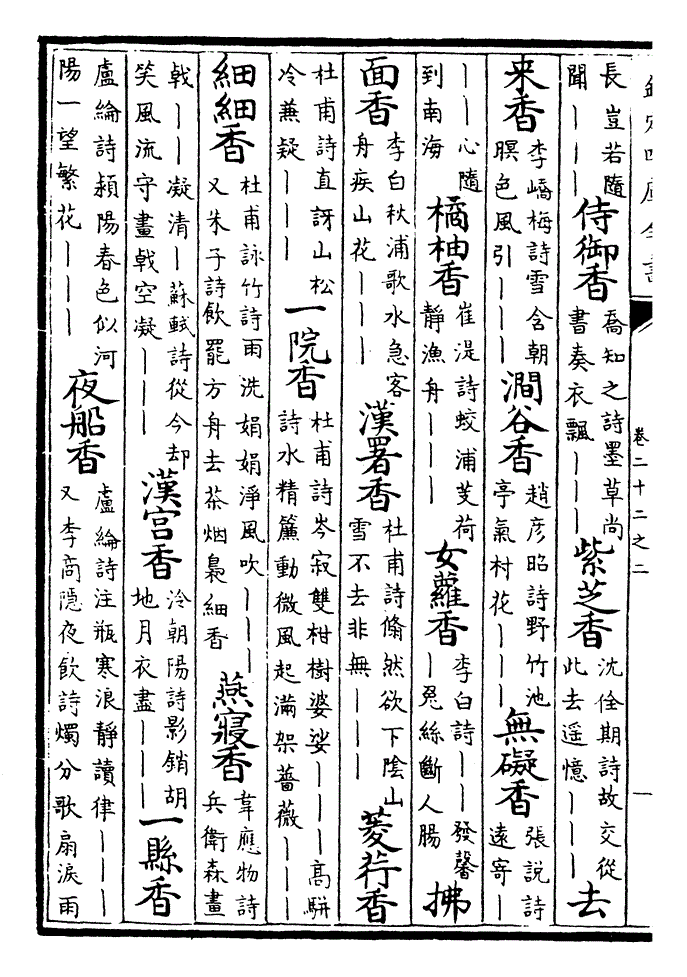 欽定四庫全書 卷二十二之二 一
長豈若隨聞｜｜｜ 侍御香 喬知之詩墨草尚書奏衣飄｜｜｜ 紫芝香 沈佺期詩故交從此去遥憶｜｜｜ 去
来香 李嶠梅詩雪含朝暝色風引｜｜｜ 澗谷香 趙彦昭詩野竹池亭氣村花｜｜｜ 無礙香 張説詩遠寄｜
｜｜心隨到南海 橘柚香 崔湜詩蛟浦芰荷静漁舟｜｜｜ 女蘿香 李白詩｜｜發馨｜兎絲斷人腸 拂
面香 李白秋浦歌水急客舟疾山花｜｜｜ 漢署香 杜甫詩翛然欲下陰山雪不去非無｜｜｜ 菱荇香
杜甫詩直訝山松冷兼疑｜｜｜ 一院香 杜甫詩岑寂雙柑樹婆娑｜｜｜高駢詩水精簾動微風起滿架薔薇｜｜｜
細細香 杜甫詠竹詩雨洗娟娟淨風吹｜｜｜又朱子詩飲罷方舟去茶烟裊細香 燕寢香 韋應物詩兵衛森畫
戟｜｜凝清｜蘇軾詩從今却笑風流守畫戟空凝｜｜｜ 漢宫香 泠朝陽詩影銷胡地月衣盡｜｜｜ 一縣香
盧綸詩潁陽春色似河陽一望繁花｜｜｜ 夜船香 盧綸詩注瓶寒浪靜讀律｜｜｜又李商隐夜飲詩燭分歌扇淚雨